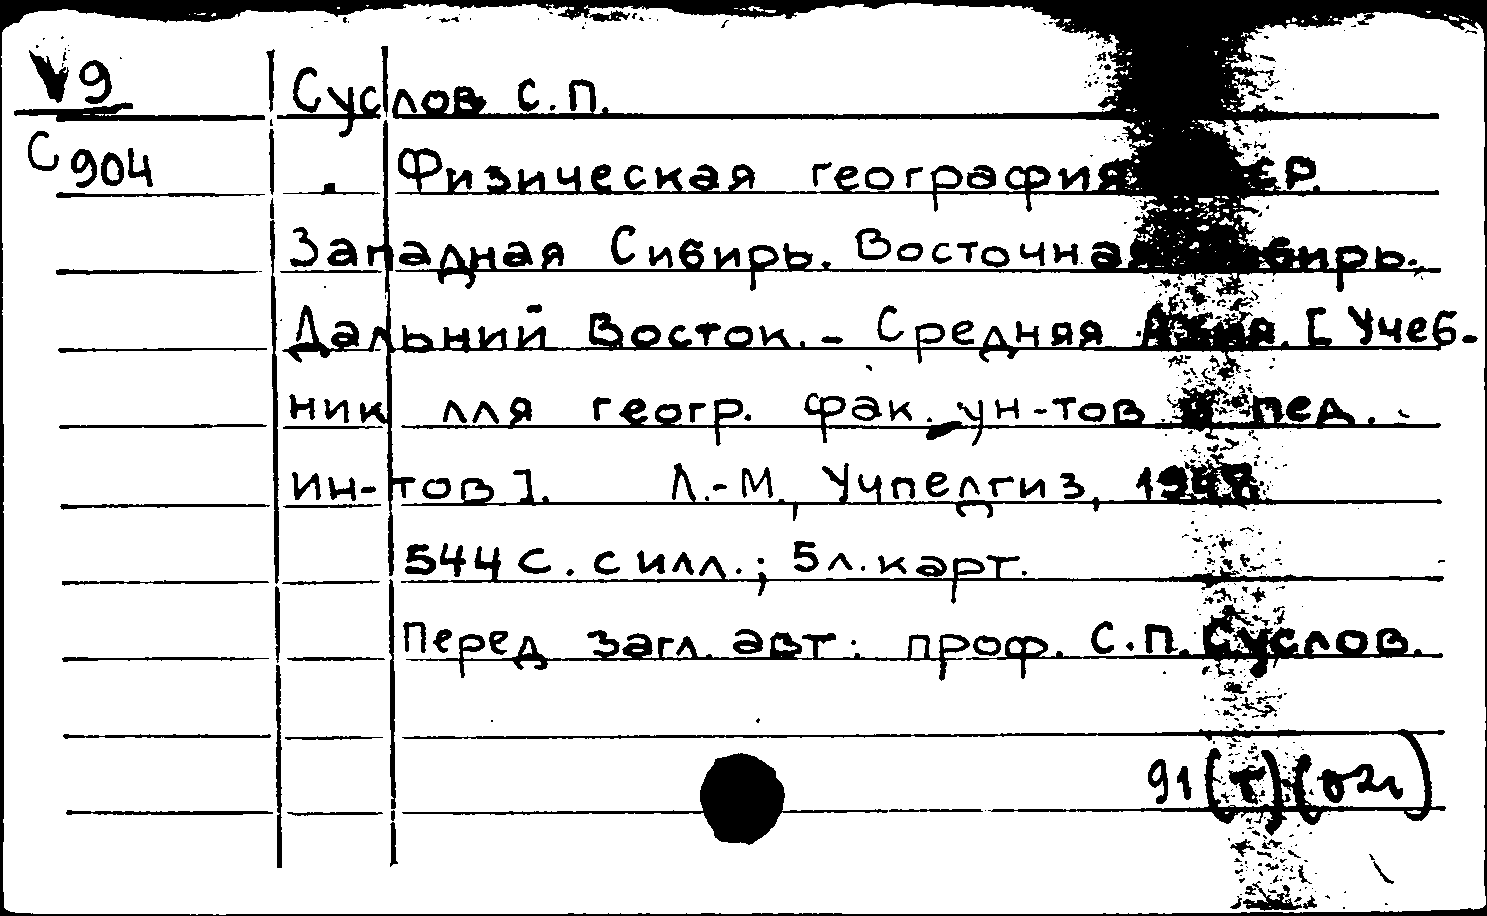 V9
С904
Суслов С.П.
Физическая география СССР.
Западная Сибирь. Восточная Сибирь.
Дальний Восток. - Средняя Азия. [Учеб-
ник для геогр. фак. ун-тов и пед.
ин-тов]. Л.-М., Учпедгиз, 1947
544 с. с илл.; 5 л. карт.
Перед загл. авт: проф. С.П. Суслов.
91(Т)(02)